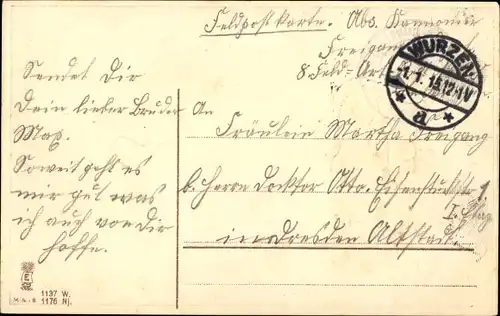 Feldpostkarte. Abs. Kanonier
Freigang
8. Feld-Art
WURZEN
-1.1.15.12-1V
* a *
Sendet Dir
Dein lieber Bruder
Max.
Soweit geht es
mir gut was
ich auch von dir
hoffe.
An
Fräulein Martha Freigang
b. Herrn Docktor Otto. Eisenstuckstr
I. Etag
in Dresden Altstadt.
1137 W.
1176 Nj.